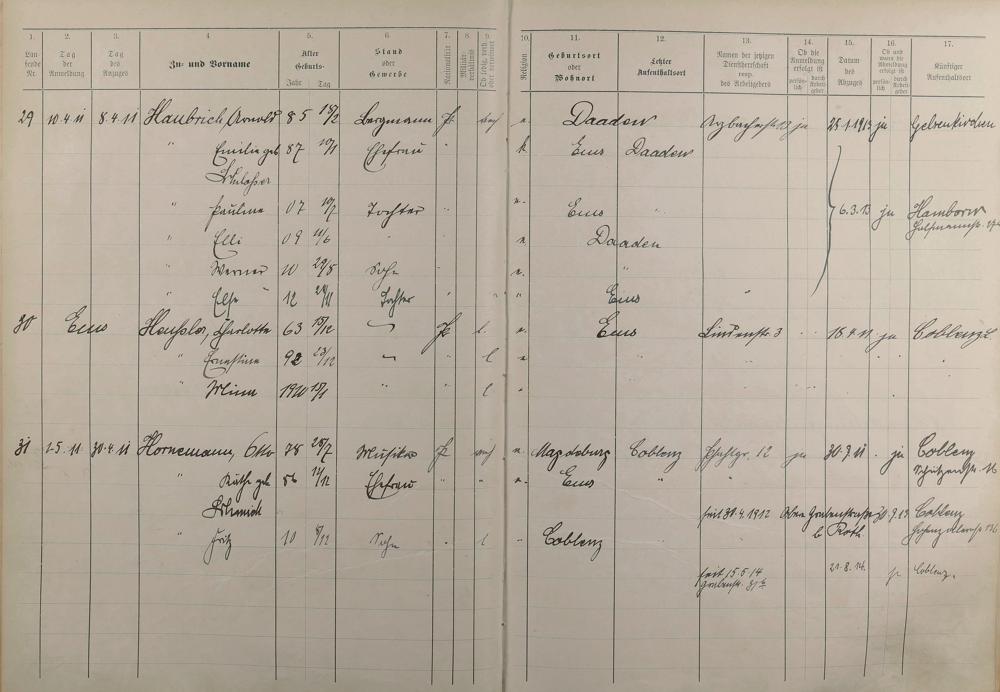 1. 2. 3. 4 5. 6. 7. 8. 9. 10. 11. 12. 13. 14. 15. 16. 17.
Lau-fende Nr. Tag der Anmeldung Tag des Anzuges Zu- und Vorname Alter Geburts- Jahr Tag Stand oder Gewerbe Nationalität Militär-verhältnis Ob ledig, verh. oder verwitwet Religion Geburtsort oder Wohnort Letzter Aufenthaltsort Namen der jetzigen Dienstherrschaft resp. des Arbeitgebers Ob die Anmeldung erfolgt ist persön-lich durch Arbeit-geber Datum des Abzuges Ob und wann die Abmeldung erfolgt ist persön-lich durch Arbeit-geber Künftiger Aufenthaltsort
29 10.4.11 8.4.11 Haubrich, Arnold 85 Bergmann Pr. verh e. Daaden ja 25.1.1913 ja Gelsenkirchen
" Emilie geb 87 10/1 Ehefrau " k Ems Daaden
Schlosser
" Pauline 07 10/7 Tochter " e. Ems " 6.3.13 ja Hamborn
" Elli 09 11/6 " e. Daaden
" Werner 10 29/5 Sohn e. "
" Else 12 Tochter " " Ems "
30 Ems Charlotte 63 15/12 Pr. l. e. Ems Lindenstr. 3 18.4.11 ja Coblenz
" Ernestine 92 23/12 l e.
" Minna 1910 15/1 " " l "
31 1.5.11 30.4.11 Hornemann, Otto 78 28/7 Musiker Pr. verh e. Magdeburg Coblenz Pfahlgr. 12 ja 30.9.11 ja Coblenz
" Käthe geb 86 14/12 Ehefrau " " e. Ems " Schützenstr. 16
Schmidt seit 30.4.1912 Obere Grabenstraße 30.9.13 Coblenz
" Fritz 10 8/12 Sohn l " Coblenz b Roth.
seit 15.5.14 21.8.14. Coblenz.
Grabenstr. 31